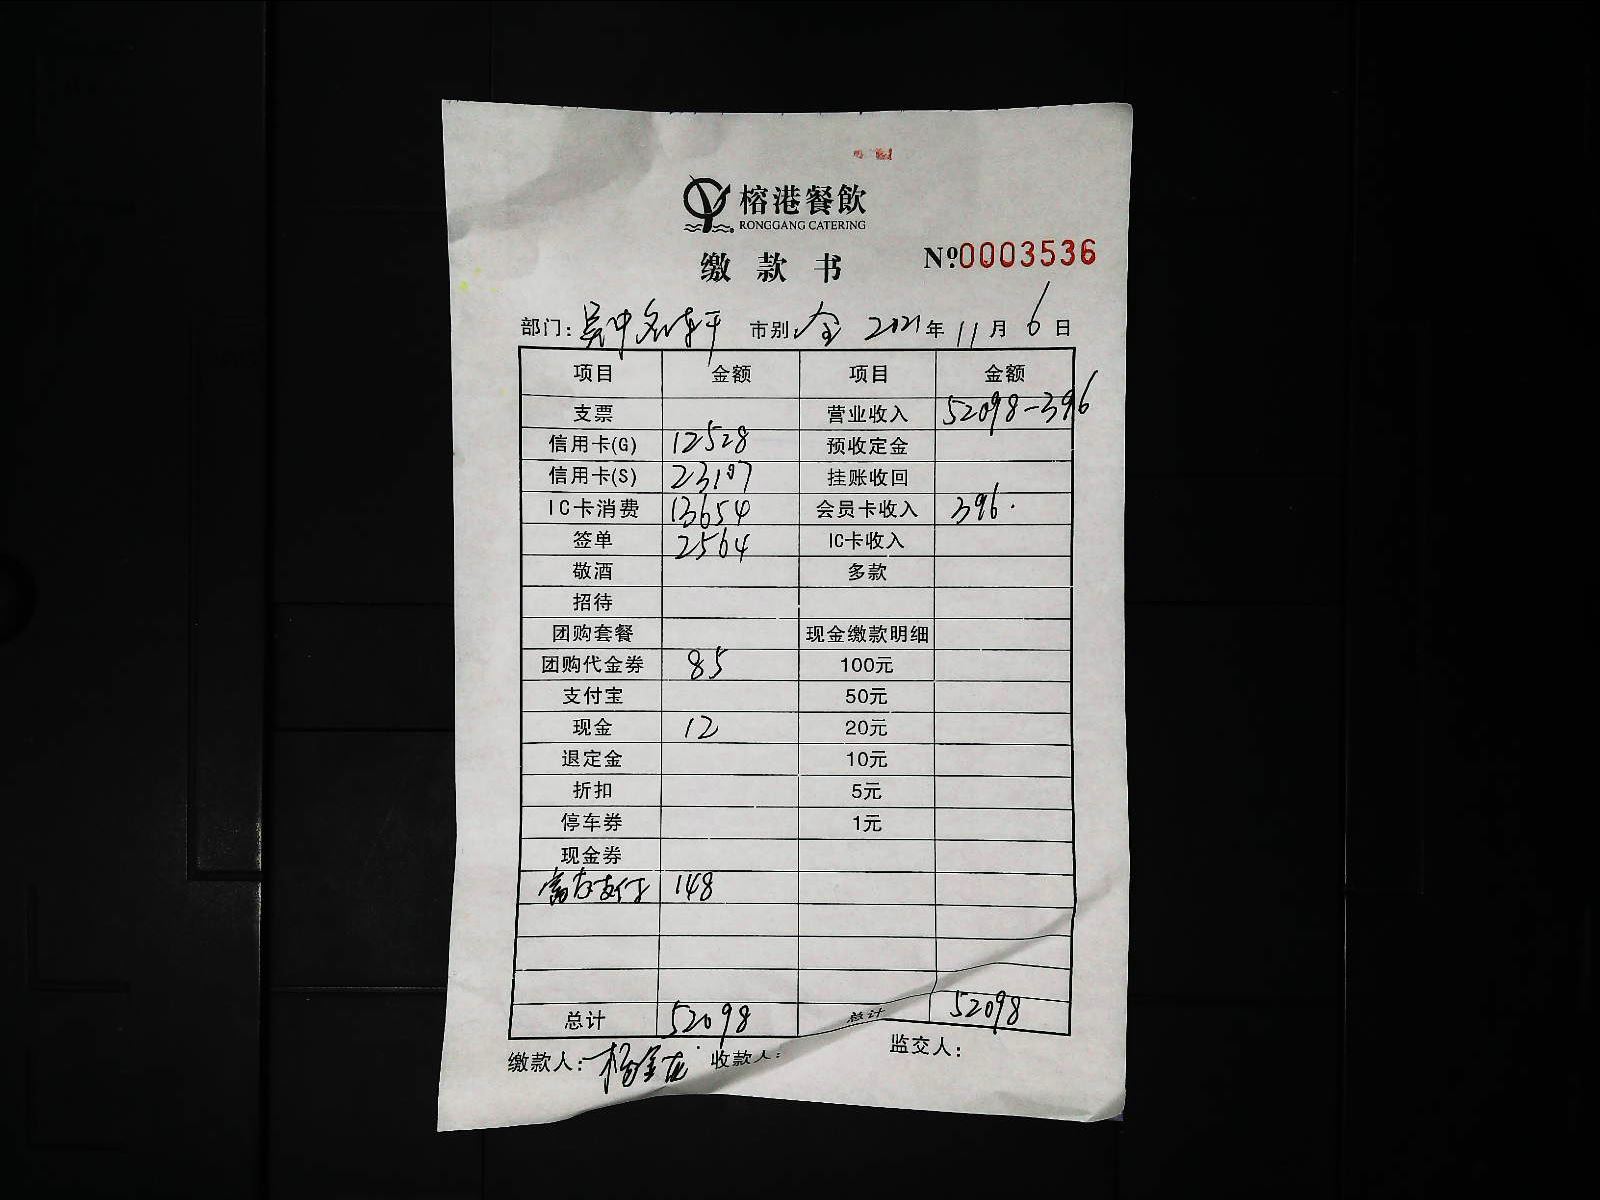 榕港餐飲
RONGGANG CATERING
缴款书 №0003536
部门: 吴中 市别 全 2021年11月6日
项目 金额 项目 金额
支票 营业收入 52098-396
信用卡(G) 12528 预收定金
信用卡(S) 23107 挂账收回
IC卡消费 13654 会员卡收入 396.
签单 2564 IC卡收入
敬酒 多款
招待
团购套餐 现金缴款明细
团购代金券 85 100元
支付宝 50元
现金 12 20元
退定金 10元
折扣 5元
停车券 1元
现金券
支付 148
总计 52098 总计 52098
缴款人: 收款人: 监交人: